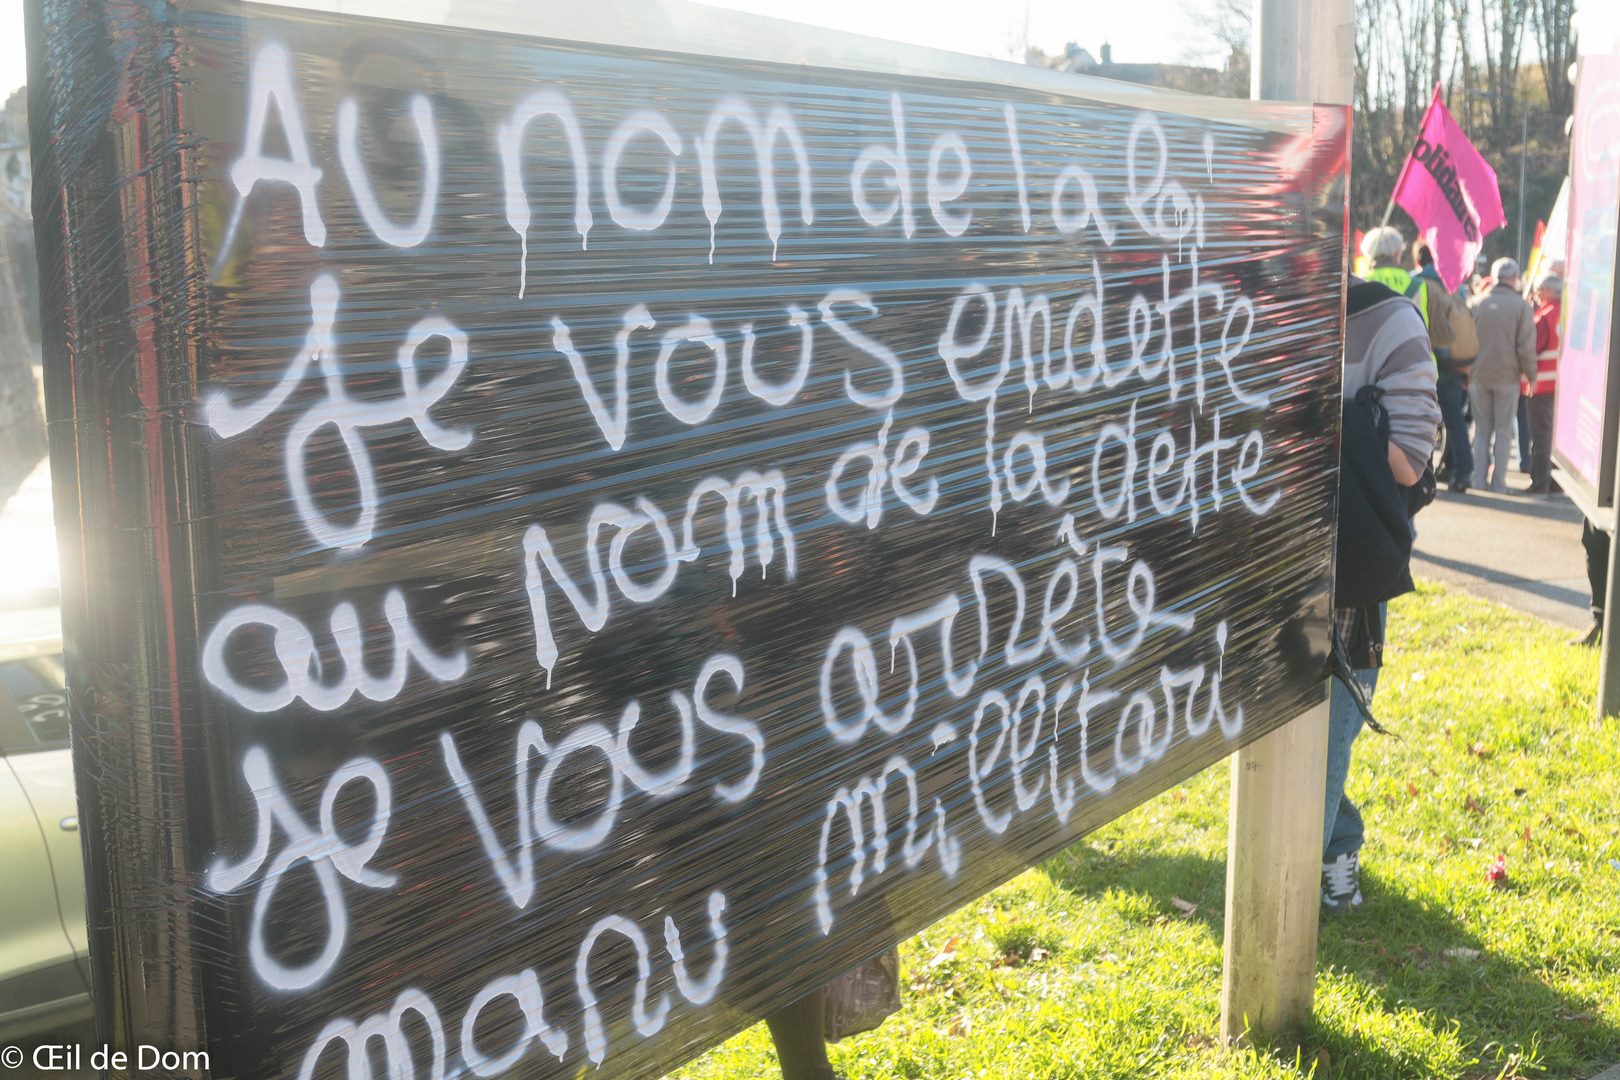 AU nom de la loi
je vous endette
au nom de la dette
je vous arrête
manu militari
olidaire
© Œil de Dom